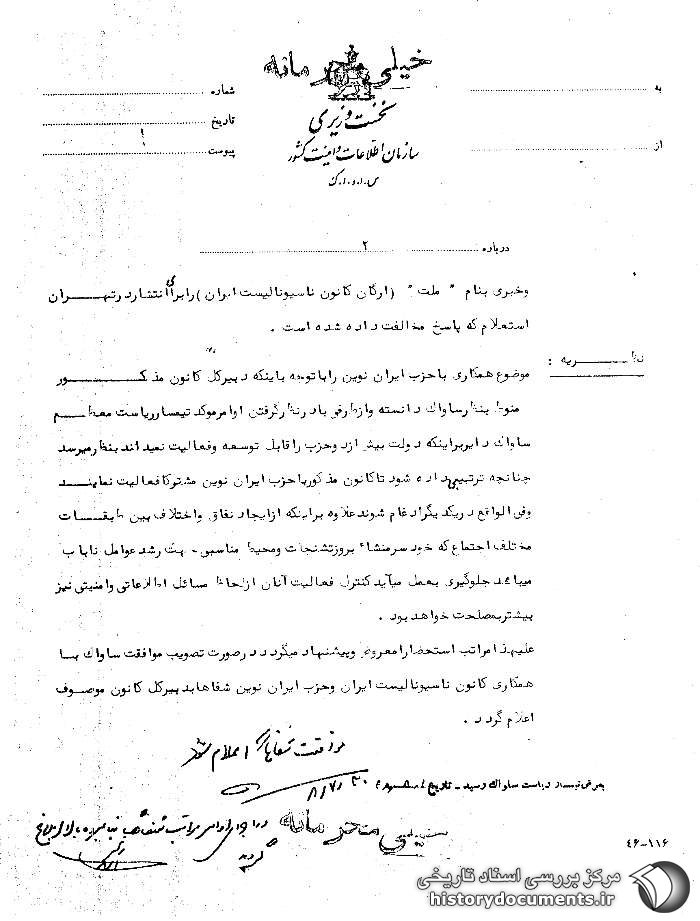 خیلی محرمانه
به
شماره
نخست وزیری
تاریخ
از
سازمان اطلاعات و امنیت کشور
پیوست
س.ا.و.ا.ک
درباره ۲
وخبری بنام " ملت " (ارگان کانون ناسیونالیست ایران) رابرای انتشاردرتهران
استعلام که پاسخ مخالفت داده شده است .
نظریه :
موضوع همکاری باحزب ایران نوین راباتوجه باینکه دبیرکل کانون مذکور
منوط بنظرساواک دانسته وازطرفی بادرنظرگرفتن اوامرموکد تیمسارریاست معظم
ساواک دایربراینکه دولت بیش ازدوحزب راقابل توسعه وفعالیت نمیداند بنظرمیرسد
چنانچه ترتیبی داده شود تاکانون مذکورباحزب ایران نوین مشترکا فعالیت نمایند
وفی الواقع دریکدیگرادغام شوند علاوه براینکه ازایجاد نفاق واختلاف بین طبقات
مختلف اجتماع که خود سرمنشاء بروزتشنجات ومحیط مناسبی جهت رشد عوامل ناباب
میباشد جلوگیری بعمل میآید کنترل فعالیت آنان ازلحاظ مسائل اطلاعاتی وامنیتی نیز
بیشتربمصلحت خواهد بود .
علیهذا مراتب استحضارا معروض وپیشنهاد میگردد درصورت تصویب موافقت ساواک با
همکاری کانون ناسیونالیست ایران وحزب ایران نوین شفاها بدبیرکل کانون موصوف
اعلام گردد .
موافقت شفاها اعلام شود
بعرض تیمسار ریاست ساواک رسید - تاریخ
دراجرای اوامر مراتب ابلاغ
گردید
خیلی محرمانه
۴۶-۱۱۶
مرکز بررسی اسناد تاریخی
historydocuments.ir